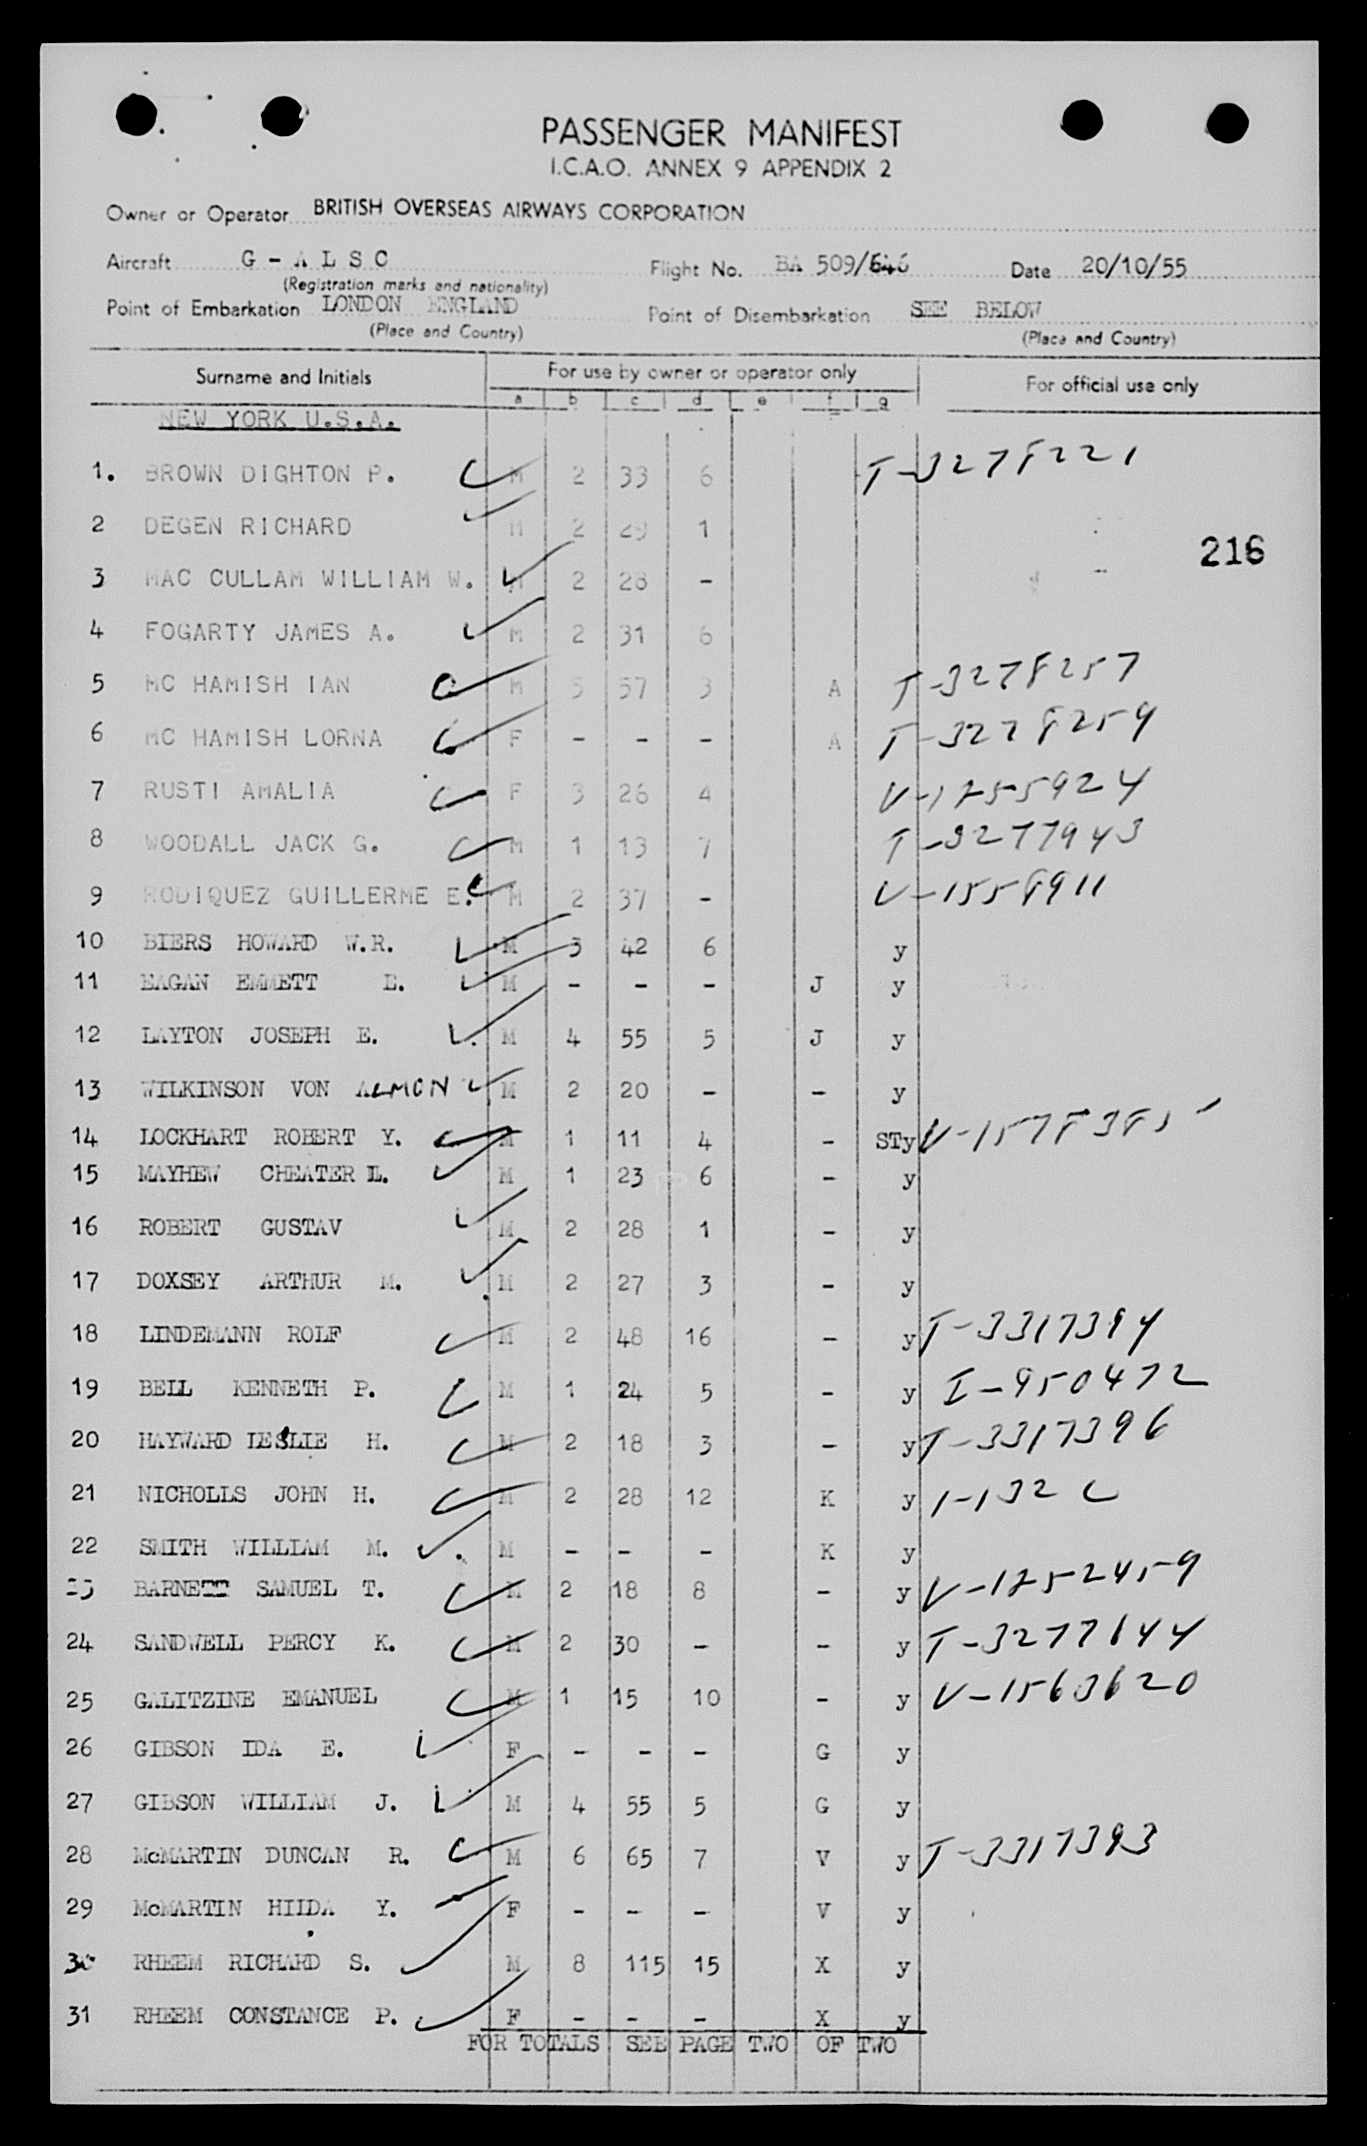 PASSENGER MANIFEST
I.C.A.O. ANNEX 9 APPENDIX 2
Owner or Operator BRITISH OVERSEAS AIRWAYS CORPORATION
Aircraft G - A L S C Flight No. BA 509/ Date 20/10/55
(Registration marks and nationality)
Point of Embarkation LONDON ENGLAND Point of Disembarkation SEE BELOW
(Place and Country) (Place and Country)
Surname and Initials For use by owner or operator only For official use only
a b c d e f g
NEW YORK U.S.A.
1. BROWN DIGHTON P. M 2 33 6 T-3278221
2 DEGEN RICHARD M 2 29 1
216
3 MAC CULLAM WILLIAM W. M 2 28 -
4 FOGARTY JAMES A. M 2 31 6
5 MC HAMISH IAN M 5 57 3 A T-3278257
6 MC HAMISH LORNA F - - - A T-3278259
7 RUSTI AMALIA F 3 26 4 V-1255924
8 WOODALL JACK G. M 1 13 7 T-3277943
9 RODIQUEZ GUILLERME E. M 2 37 - V-1558911
10 BIERS HOWARD W.R. M 3 42 6 y
11 EAGAN EMMETT E. M - - - J y
12 LAYTON JOSEPH E. M 4 55 5 J y
13 WILKINSON VON ALMON M 2 20 - - y
14 LOCKHART ROBERT Y. M 1 11 4 - STy V-1578385
15 MAYHEW CHEATER L. M 1 23 6 - y
16 ROBERT GUSTAV M 2 28 1 - y
17 DOXSEY ARTHUR M. M 2 27 3 - y
18 LINDEMANN ROLF M 2 48 16 - y T-3317394
19 BELL KENNETH P. M 1 24 5 - y I-950472
20 HAYWARD LESLIE H. M 2 18 3 - y T-3317396
21 NICHOLLS JOHN H. M 2 28 12 K y 1-132 C
22 SMITH WILLIAM M. M - - - K y
23 BARNETT SAMUEL T. M 2 18 8 - y V-1252459
24 SANDWELL PERCY K. M 2 30 - - y T-3277644
25 GALITZINE EMANUEL M 1 15 10 - y V-1563620
26 GIBSON IDA E. F - - - G y
27 GIBSON WILLIAM J. M 4 55 5 G y
28 McMARTIN DUNCAN R. M 6 65 7 V y T-3317393
29 McMARTIN HILDA Y. F - - - V y
30 RHEEM RICHARD S. M 8 115 15 X y
31 RHEEM CONSTANCE P. F - - - X y
FOR TOTALS SEE PAGE TWO OF TWO